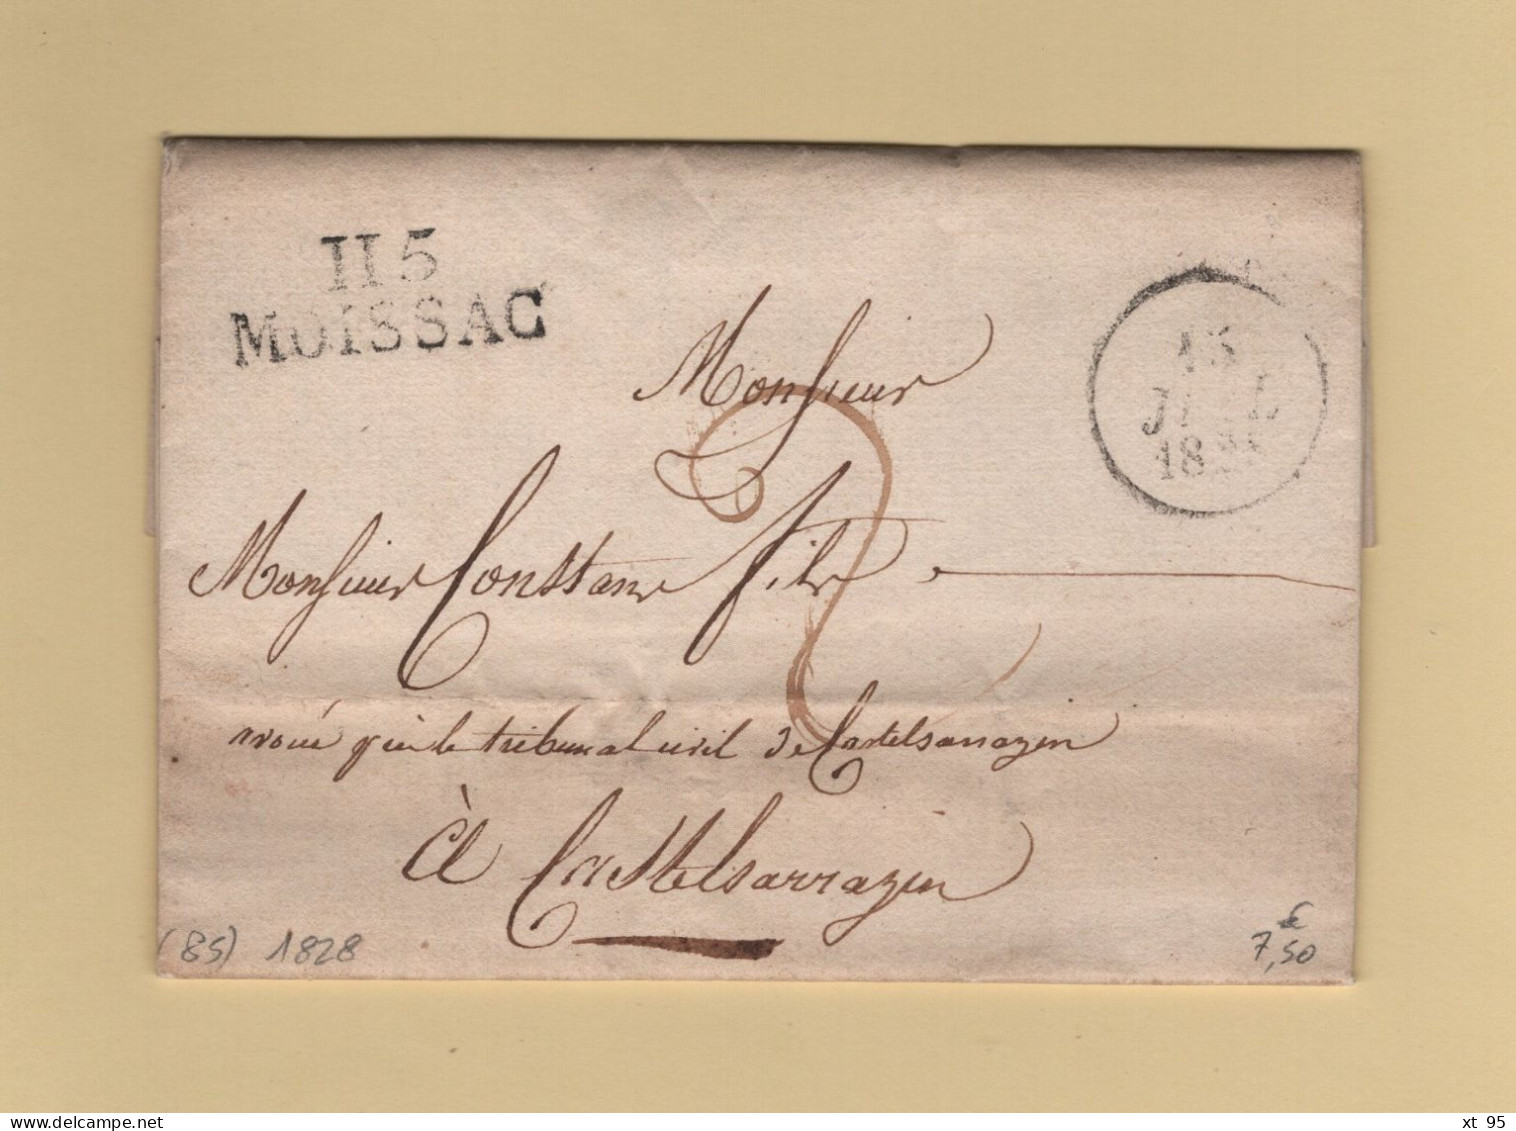 115
MOISSAC
15
JUIL
1828
Monsieur
2
Monsieur Constans fils
avoué près le tribunal civil de Castelsarrazin
à Castelsarrazin
(85) 1828
€
7,50
delcampe.net
xt 95